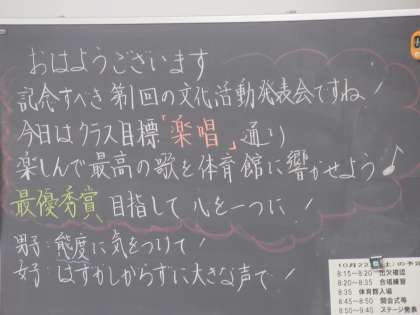 おはようございます
記念すべき第1回の文化活動発表会ですね!
今日はクラス目標「楽唱」通り
楽しんで最高の歌を体育館に響かせよう♪
最優秀賞目指して心を一つに!
男子:態度に気をつけて!
女子:はずかしからずに大きな声で!
10月22日(土)の予定
8:15~8:20 出欠確認
8:20~8:35 合唱練習
8:35 体育館入場
8:45~8:50 開会式等
8:50~9:40 ステージ発表